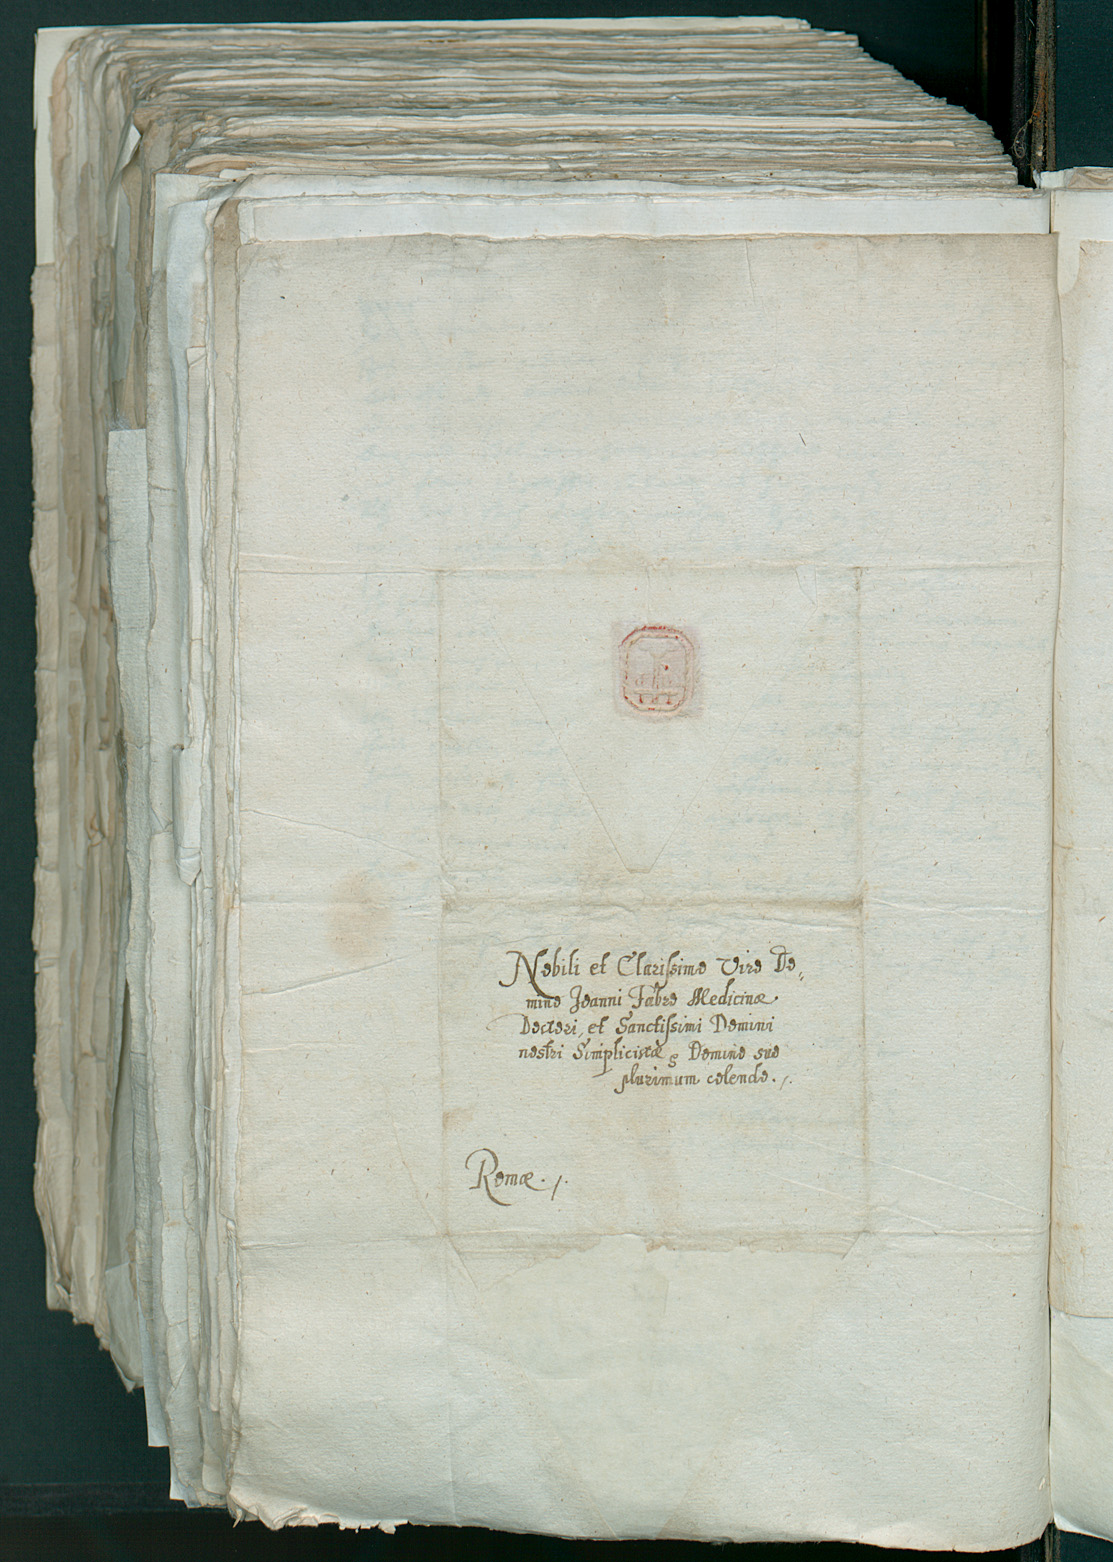 Nobili et Clarissimo Viro Do,,
mino Joanni Fabro Medicinæ
Doctori, et Sanctissimi Domini
nostri Simplicistæ, Domino suo
plurimum colendo./.
Romæ./.